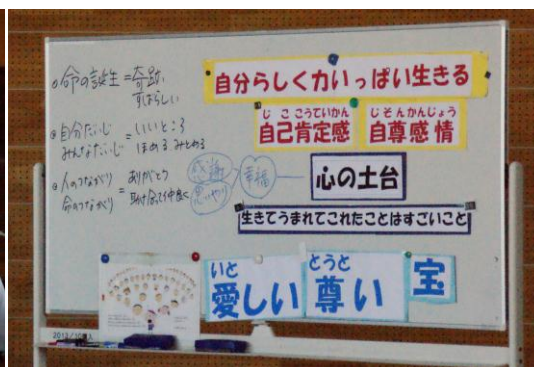 命の誕生=奇跡
すばらしい
自分だいじ
みんなだいじ
=いいところ
ほめる みとめる
人のつながり
命のつながり
=ありがとう
助け合って仲良く
感謝
思いやり
幸福
自分らしく力いっぱい生きる
じここうていかん
自己肯定感
じそんかんじょう
自尊感情
心の土台
生きてうまれてこれたことはすごいこと
いと
愛しい
とうと
尊い
宝